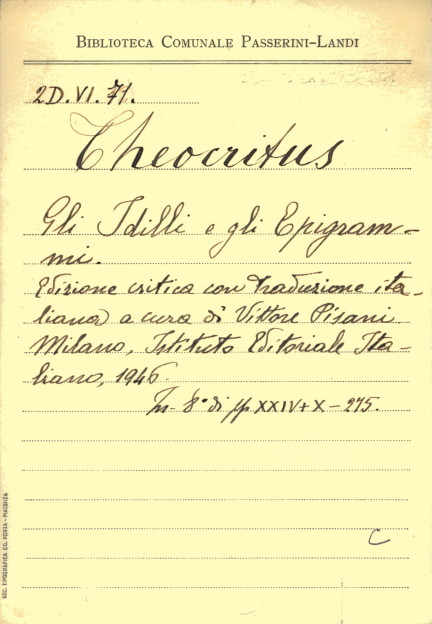 BIBLIOTECA COMUNALE PASSERINI-LANDI
2D.VI.71.
Theocritus
Gli Idilli e gli Epigram-
mi.
Edizione critica con traduzione ita-
liana a cura di Vittore Pisani
Milano, Istituto Editoriale Ita-
liano, 1946.
In-8° di pp XXIV+X-275.
C
SOC. TIPOGRAFICA ED. PORTA - PIACENZA